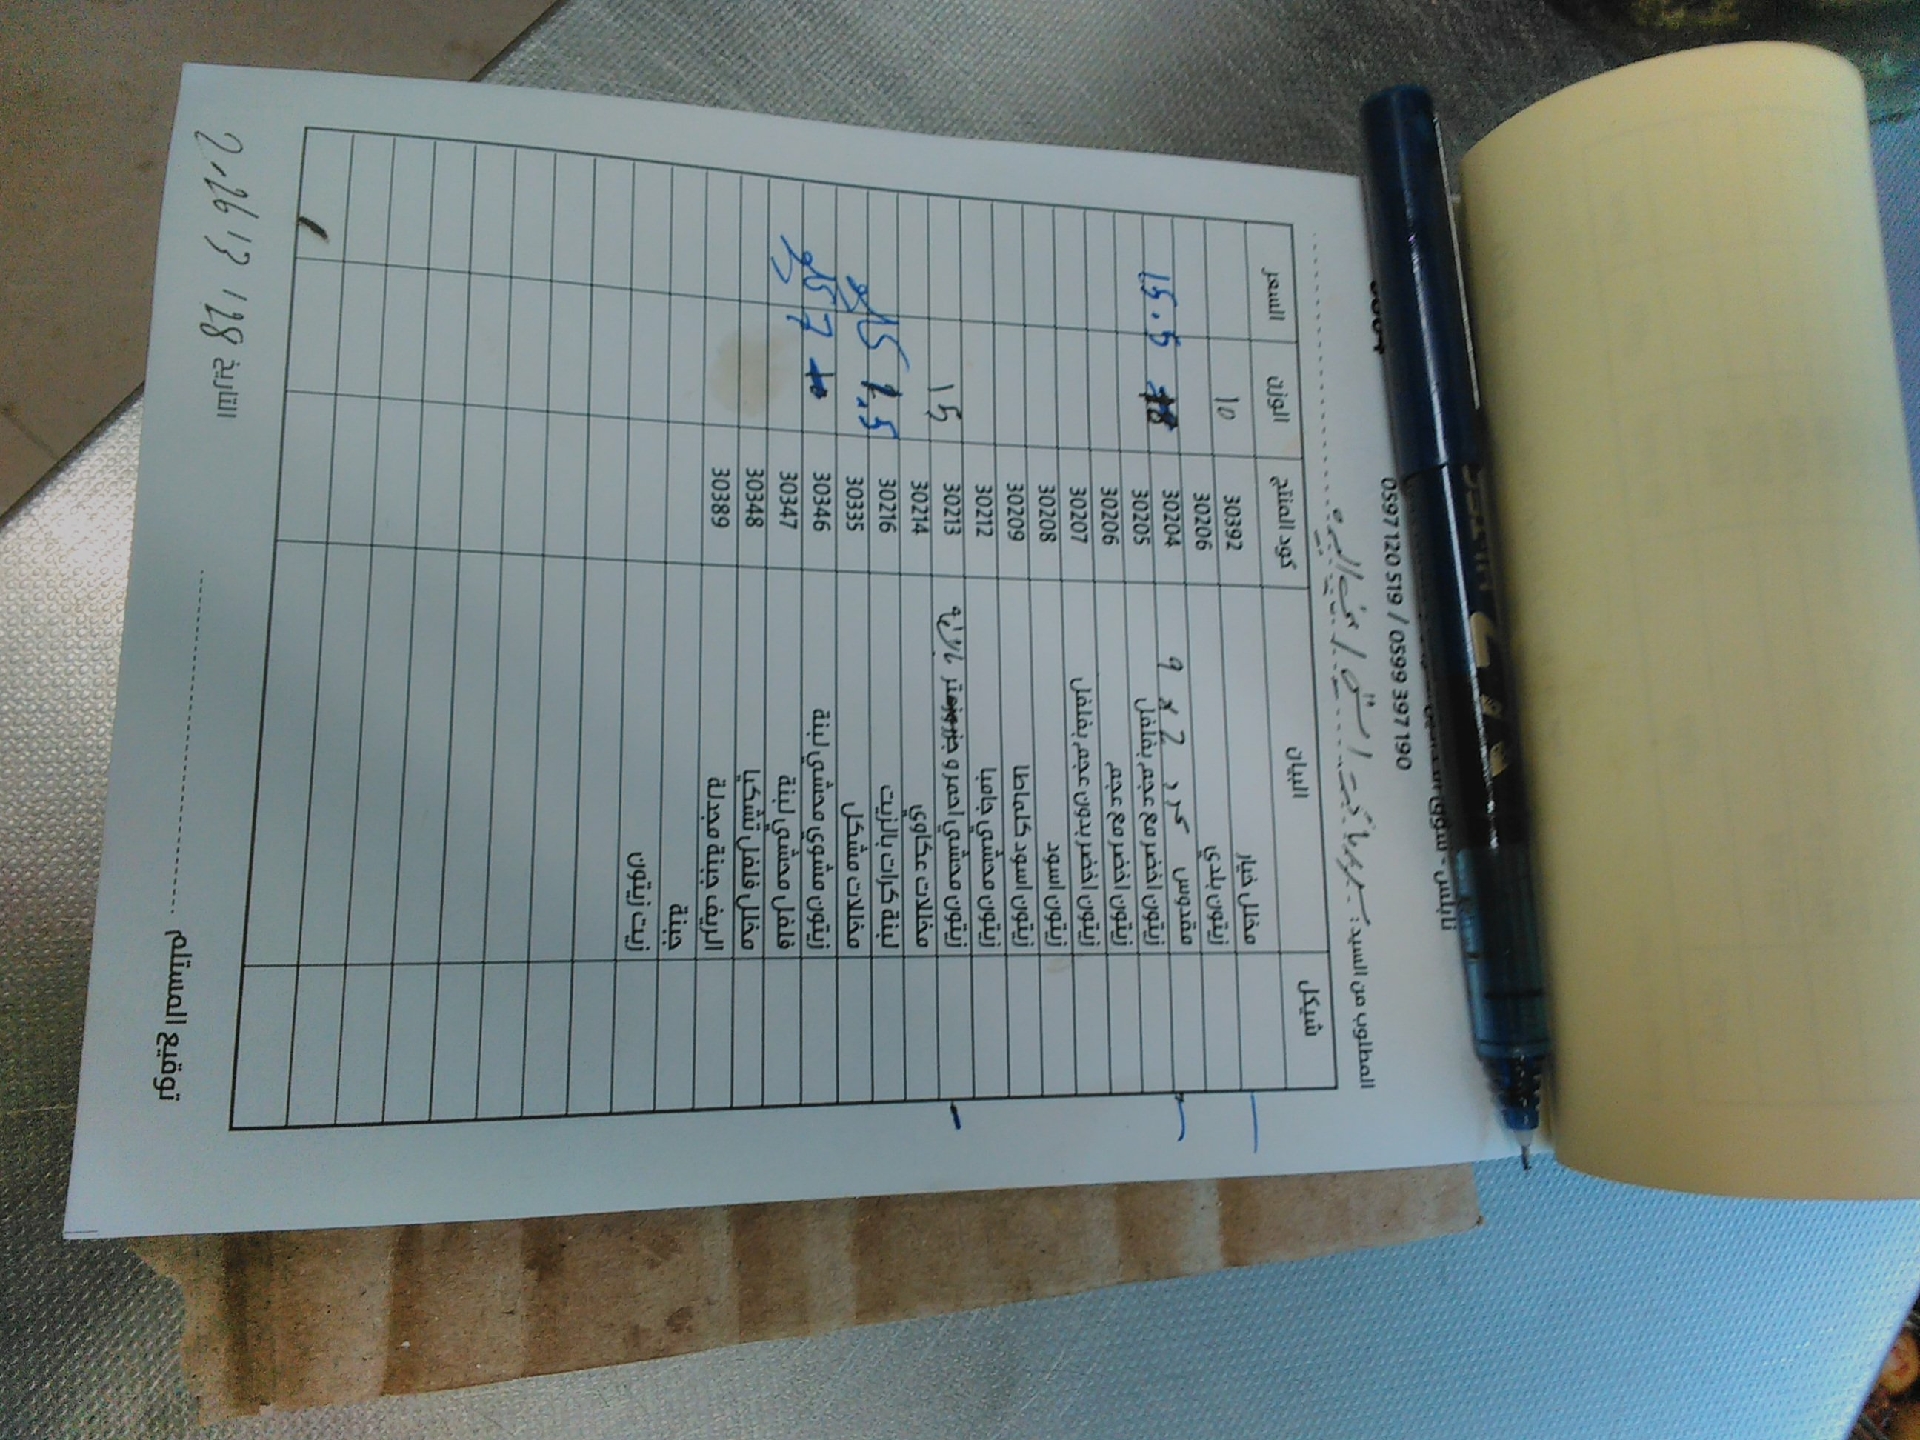 0597 120 519 / 0599 397 190
المطلوب من السيد:
السعر الوزن كود المنتج البيان شيكل
10 30392 مخلل خيار
30206 زيتون بلدي
15.5 30204 مقدوس عدد 2 * 9
30205 زيتون اخضر مع عجم بفلفل
30206 زيتون اخضر مع عجم
30207 زيتون اخضر بدون عجم بفلفل
30208 زيتون اسود
30209 زيتون اسود كلماطا
30212 زيتون محشي جامبا
15 30213 زيتون محشي احمر و
30214 مخللات عكاوي
1.5 30216 لبنة كرات بالزيت
30335 مخللات مشكل
7 30346 زيتون مشوي محشي لبنة
30347 فلفل محشي لبنة
30348 مخلل فلفل تشكيا
30389 الريف جبنة مجدلة
جبنة
زيت زيتون
التاريخ 28 / 3 / 2026
توقيع المستلم